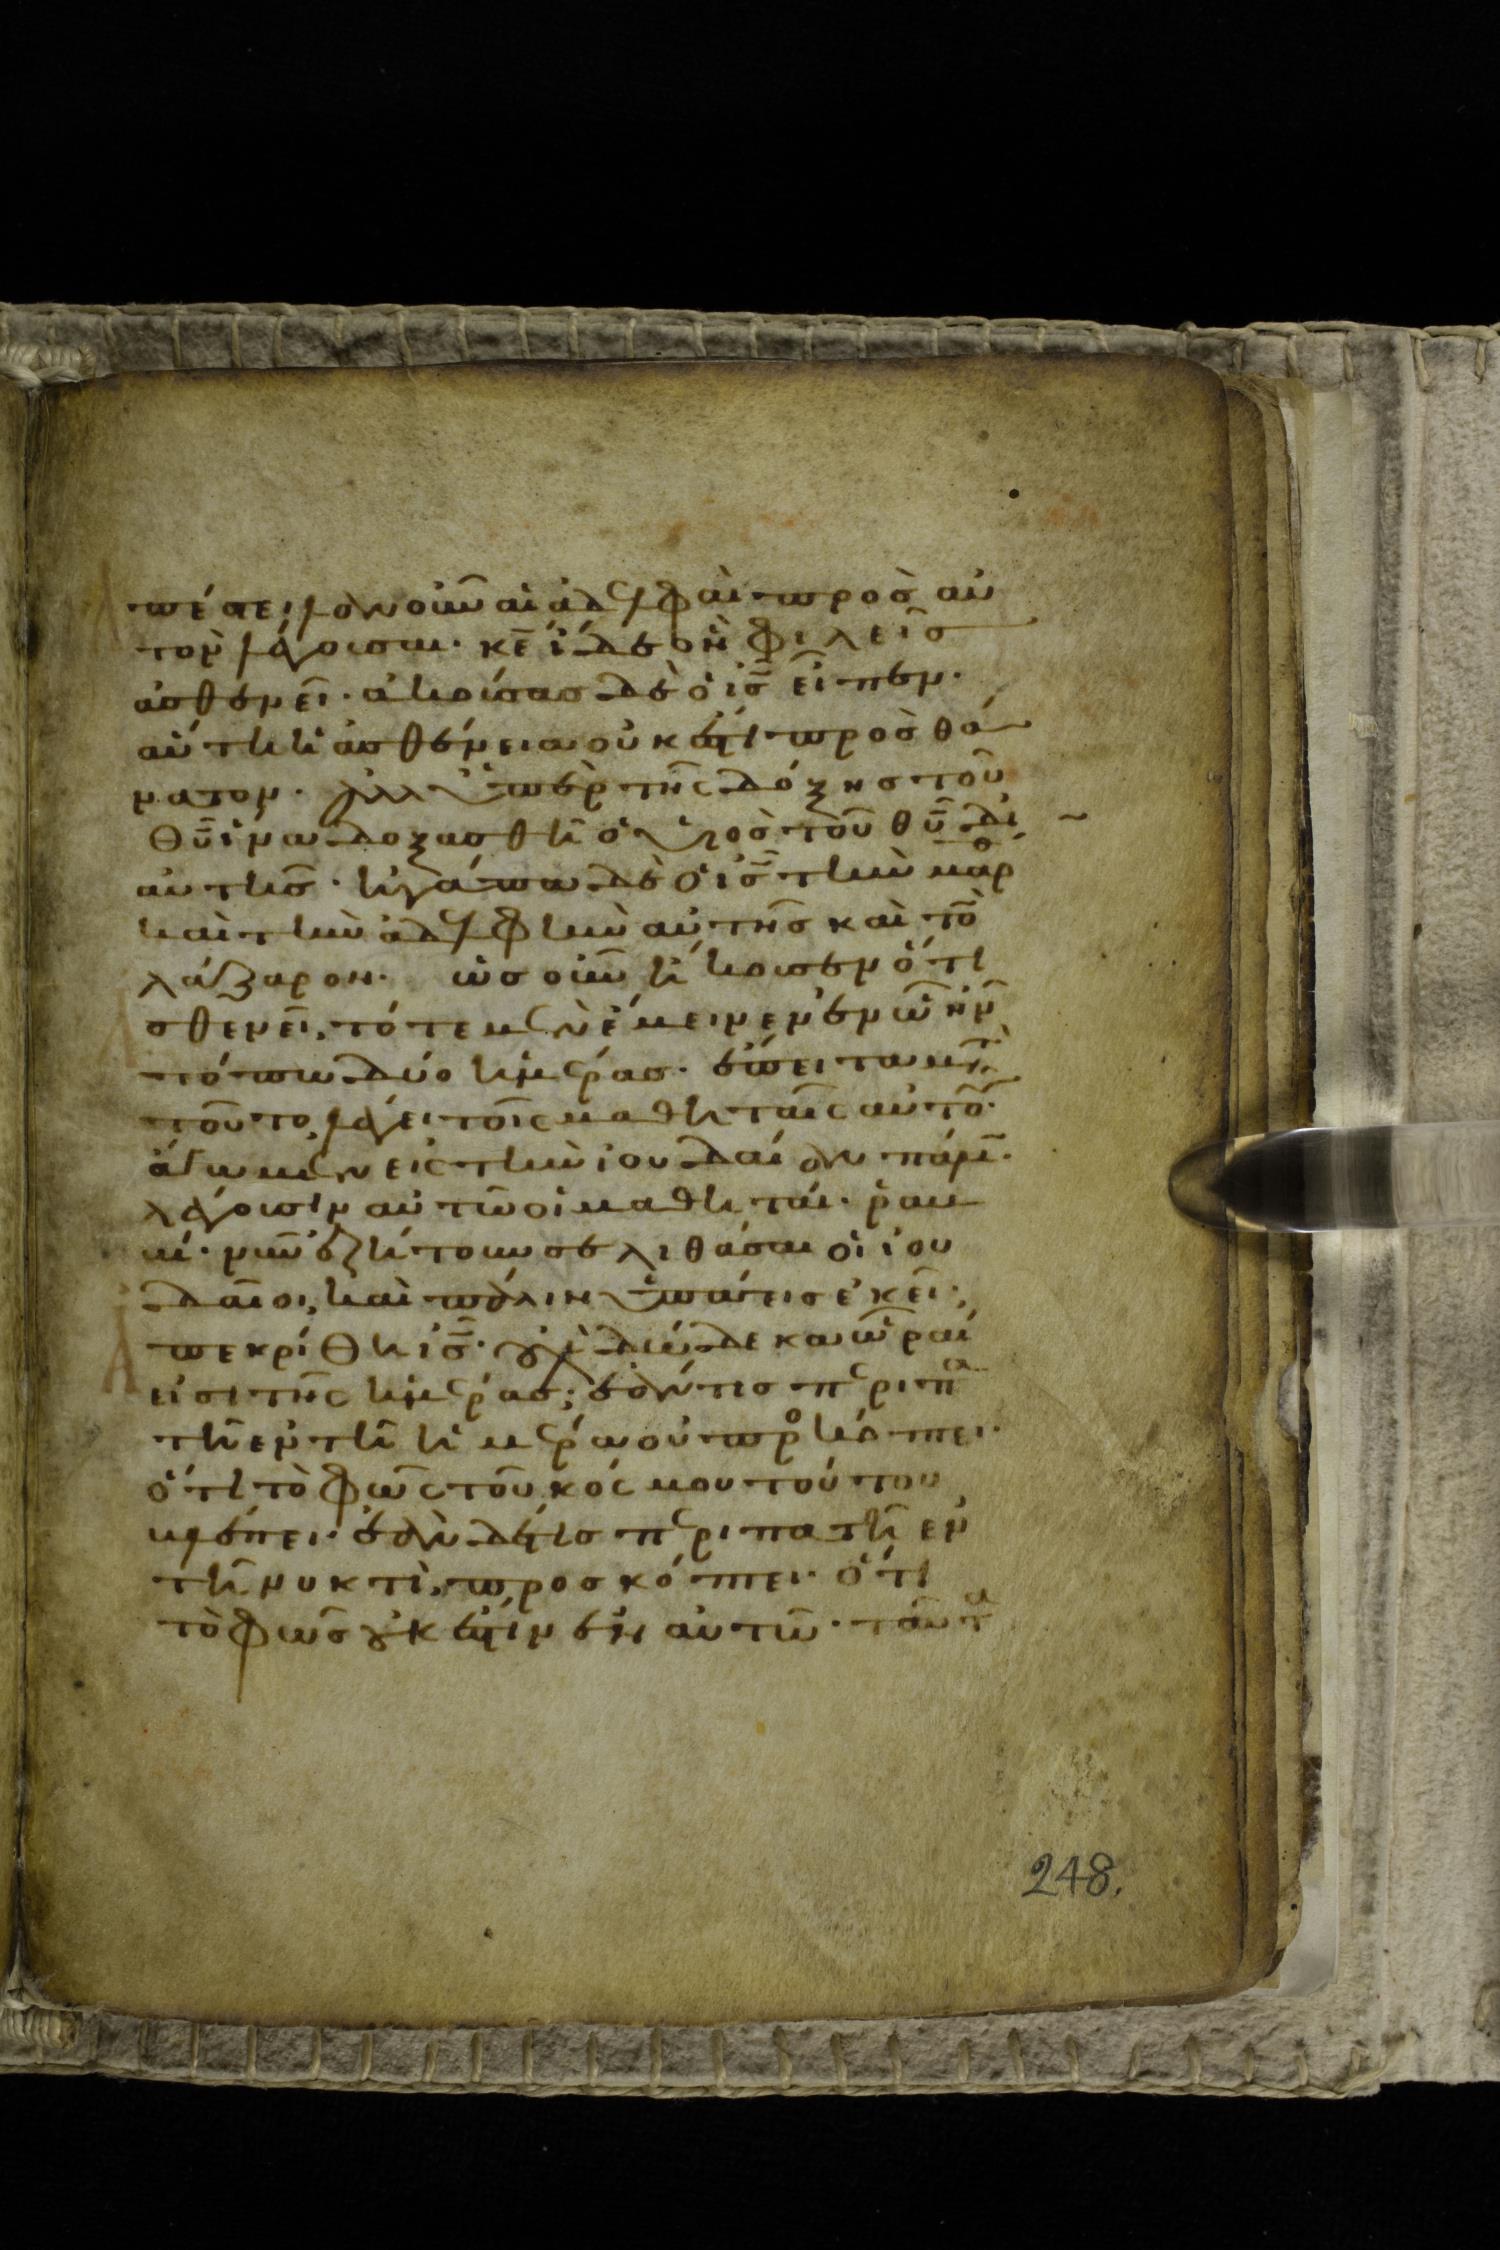 πέστειλαν οὖν αἱ ἀδελφαὶ προσ αὐ
τὸν λέγουσαι· κε̅ ἴδε ὃν φιλεῖσ
ἀσθενεῖ· ἀκούσασ δὲ ὁ ισ̅ εἶπεν·
αὕτη ἡ ἀσθένεια οὐκ ἔστι προσ θά
νατον· ἀλλ ὑπὲρ τῆς δόξησ τοῦ
θυ̅ ἵνα δοξασθῆ ὁ υἱοσ τοῦ θυ̅ δι
αὐτῆσ· ἠγάπα δὲ ὁ ισ̅ τὴν μαρ
καὶ τὴν ἀδελφὴν αὐτῆσ καὶ τὸ
λάζαρον· ὡσ οὖν ἤκουσεν ὅτι
σθενεῖ, τότε μὲν ἔμεινεν ἐν ὧ ἦν
τόπω δύο ἡμέρασ· ἔπειτα μετὰ
τοῦτο λέγει τοῖς μαθηταῖς αὐτοῦ·
ἄγωμεν εἰς τὴν ἰουδαίαν πάλιν·
λέγουσιν αὐτῶ οἱ μαθηταί· ῥαβ
βί· νῦν ἐζήτουν σε λιθάσαι οἱ ἰου
δαῖοι, καὶ πάλιν ὑπάγεισ ἐκεῖ·
πεκρίθη ισ̅· οὐχὶ δώδεκα ὧραί
εἰσι τῆς ἡμέρασ; ἐάν τισ περιπα
τῆ ἐν τῆ ἡμέρα οὐ προσκόπτει·
ὅτι τὸ φῶς τοῦ κόσμου τούτου
βλέπει· ἐὰν δέ τισ περιπατῆ ἐν
τῆ νυκτὶ, προσκόπτει· ὅτι
τὸ φῶσ οὐκ ἔστιν ἐν αὐτῶ· ταῦτα
248.